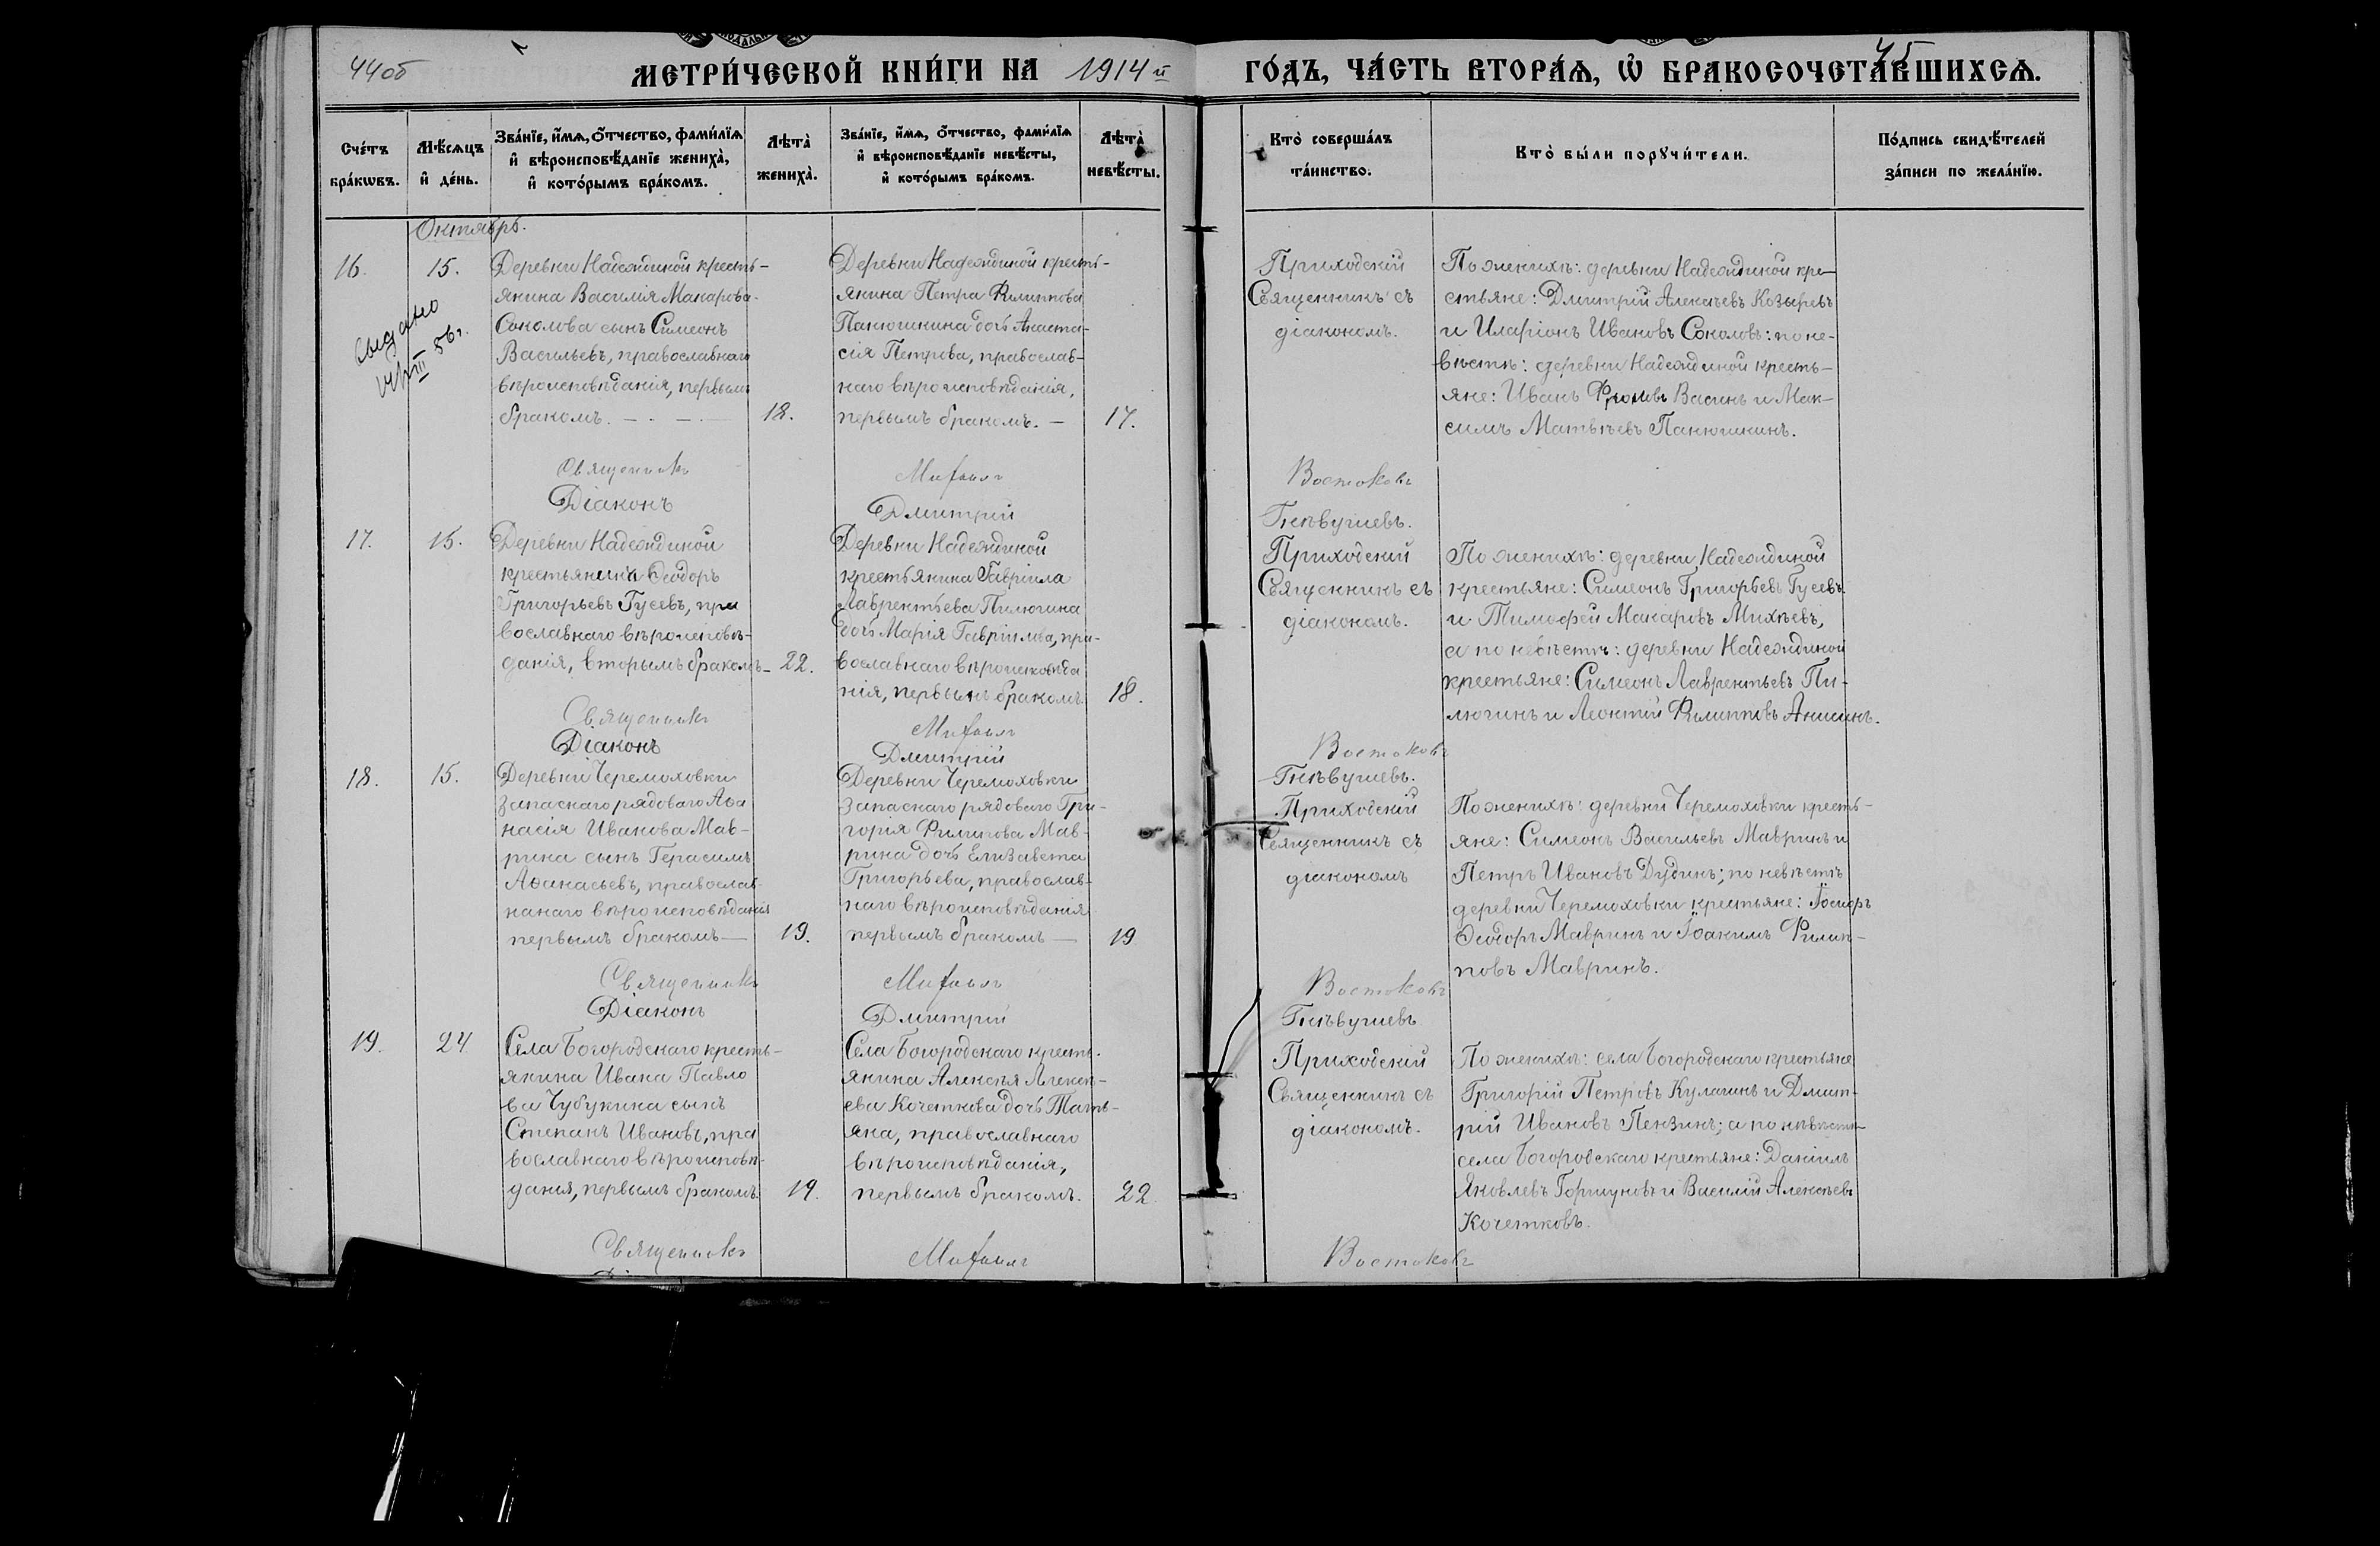 44об
МЕТРИ́ЧЕСКОЙ КНИ́ГИ НА 1914 й ГО́ДЪ, ЧА́СТЬ ВТОРА́Ѧ, Ѽ БРАКОСОЧЕТА́ВШИХСѦ.
45
Сче́тъ бра́кѡвъ.
Мѣ́сѧцъ и҆ де́нь.
Зва́нїе, и҆́мѧ, ѻ҆́тчество, фами́лїѧ и҆ вѣроисповѣ́данїе жениха̀, и҆ кото́рымъ бра́комъ.
Лѣта̀ жениха̀.
Зва́нїе, и҆́мѧ, ѻ҆́тчество, фами́лїѧ и҆ вѣроисповѣ́данїе невѣ́сты, и҆ кото́рымъ бра́комъ.
Лѣта̀ невѣ́сты.
Кто̀ соверша́лъ та́инство.
Кто̀ бы́ли порꙋчи́тели.
По́дпись свидѣ́телей за́писи по жела́нїю.
Октябрь.
16.
15.
выдано
III 56 г.
Деревни Надеждиной кресть-
янина Василія Макарова
Соколова сынъ Симеонъ
Васильевъ, православнаго
вѣроисповѣданія, первымъ
бракомъ.
18.
Деревни Надеждиной кресть-
янина Петра Филиппова
Панюшкина дочь Анаста-
сія Петрова, православ-
наго вѣроисповѣданія,
первымъ бракомъ.
17.
Приходскій
Священникъ съ
діакономъ.
По женихѣ: деревни Надеждиной кре-
стьяне: Дмитрій Алексѣевъ Козыревъ
и Иларіонъ Ивановъ Соколовъ: по не-
вѣстѣ: деревни Надеждиной кресть-
яне: Иванъ Фроловъ Васинъ и Мак-
симъ Матвѣевъ Панюшкинъ.
Священникъ Михаилъ Востоковъ
Діаконъ Дмитрій Гнѣвушевъ.
17.
15.
Деревни Надеждиной
крестьянинъ Ѳеодоръ
Григорьевъ Гусевъ, пра
вославнаго вѣроисповѣ-
данія, вторымъ бракомъ
22.
Деревни Надеждиной
крестьянина Гавріила
Лаврентьева Пилюгина
дочь Марія Гавріилова, пра-
вославнаго вѣроисповѣда
нія, первымъ бракомъ
18.
Приходскій
Священникъ съ
діакономъ.
По женихѣ: деревни Надеждиной
крестьяне: Симеонъ Григорьевъ Гусевъ
и Тимофей Макаровъ Михѣевъ,
а по невѣстѣ: деревни Надеждиной
крестьяне: Симеонъ Лаврентьевъ Пи-
люгинъ и Леонтій Филипповъ Анисинъ.
Священникъ Михаилъ Востоковъ
Діаконъ Дмитрій Гнѣвушевъ.
18.
15.
Деревни Черемоховки
запаснаго рядоваго Аѳа
насія Иванова Мав-
рина сынъ Герасимъ
Аѳанасьевъ, православ-
нанаго вѣроисповѣданія
первымъ бракомъ
19.
Деревни Черемоховки
запаснаго рядоваго Гри-
горія Филипова Мав-
рина дочь Елизавета
Григорьева, православ-
наго вѣроисповѣданія
первымъ бракомъ
19
Приходскій
Священникъ съ
діакономъ
По женихѣ: деревни Черемоховки кресть-
яне: Симеонъ Васильевъ Мавринъ и
Петръ Ивановъ Дудинъ; по невѣстѣ
деревни Черемоховки крестьяне:
Ѳеодоръ Мавринъ и Іоакимъ Филип-
повъ Мавринъ.
Священникъ Михаилъ Востоковъ
Діаконъ Дмитрій Гнѣвушевъ
19.
24
Села Богородскаго кресть-
янина Ивана Павло
ва Чубукина сынъ
Степанъ Ивановъ, пра
вославнаго вѣроисповѣ-
данія, первымъ бракомъ.
19.
Села Богородскаго кресть-
янина Алексѣя Алексѣ-
ева Кочеткова дочь Тать-
яна, православнаго
вѣроисповѣданія,
первымъ бракомъ.
22
Приходскій
Священникъ съ
діакономъ.
По женихѣ: села Богородскаго крестьяне
Григорій Петровъ Кулагинъ и Дмит-
рій Ивановъ Пензинъ; а по невѣстѣ
села Богородскаго крестьяне: Даніилъ
Яковлевъ Горшуновъ и Василій Алексѣевъ
Кочетковъ.
Священникъ Михаилъ Востоковъ